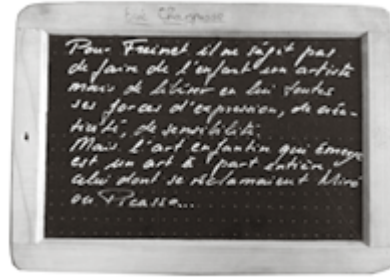 Pour Freinet il ne s'agit pas
de faire de l'enfant un artiste
mais de libérer en lui toutes
ses forces d'expression, de créa-
tivité, de sensibilité.
Mais l'art enfantin qui émerge
est un art à part entière,
celui dont se réclamaient Miró
ou Picasso...